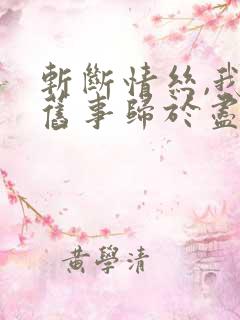 斬斷情絲,我
舊事歸於盡
黃學清